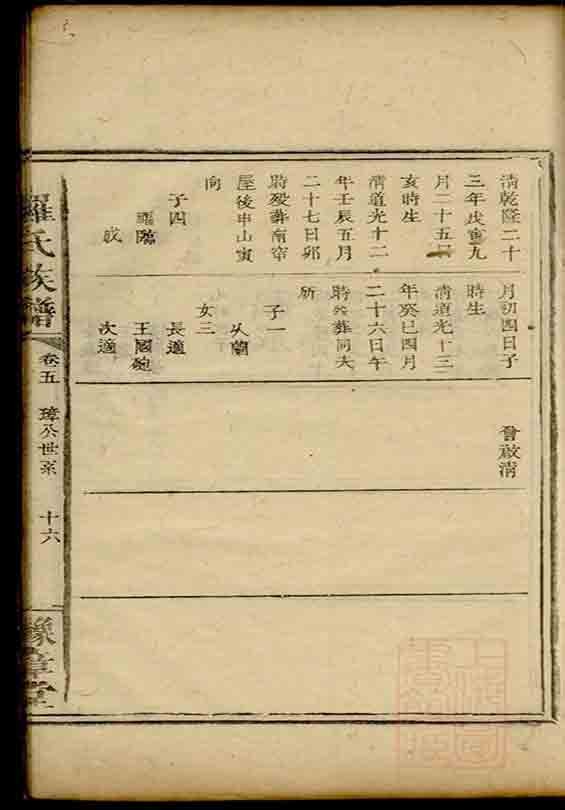 清乾隆二十
三年戊寅九
月二十五日
亥時生
清道光十二
年壬辰五月
二十七日卯
時歿葬南窄
屋後申山寅
向
子四
龍臨
成
月初四日子
時生
清道光十三
年癸巳四月
二十六日午
時終葬同夫
所
子一
从蘭
女三
長適
王國範
次適
曾啟清
羅氏族譜
卷五
璋公世系
十六
豫章堂
上海圖
書館藏